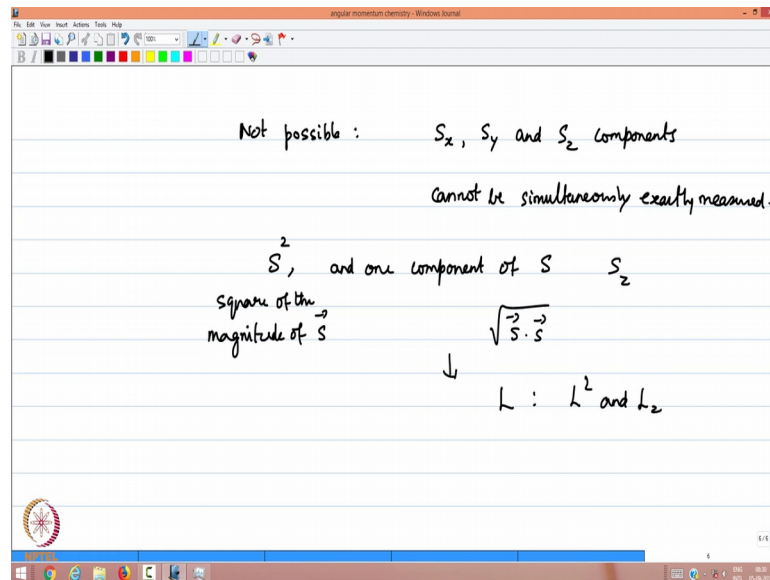 angular momentum chemistry - Windows Journal
File Edit View Insert Actions Tools Help
100%
B I
Not possible : Sx, Sy and Sz components
Cannot be simultaneously exactly measured.
S², and one component of S Sz
square of the
magnitude of S⃗ √S⃗·S⃗
↓
L : L² and Lz
6/6
6
NPTEL
ENG